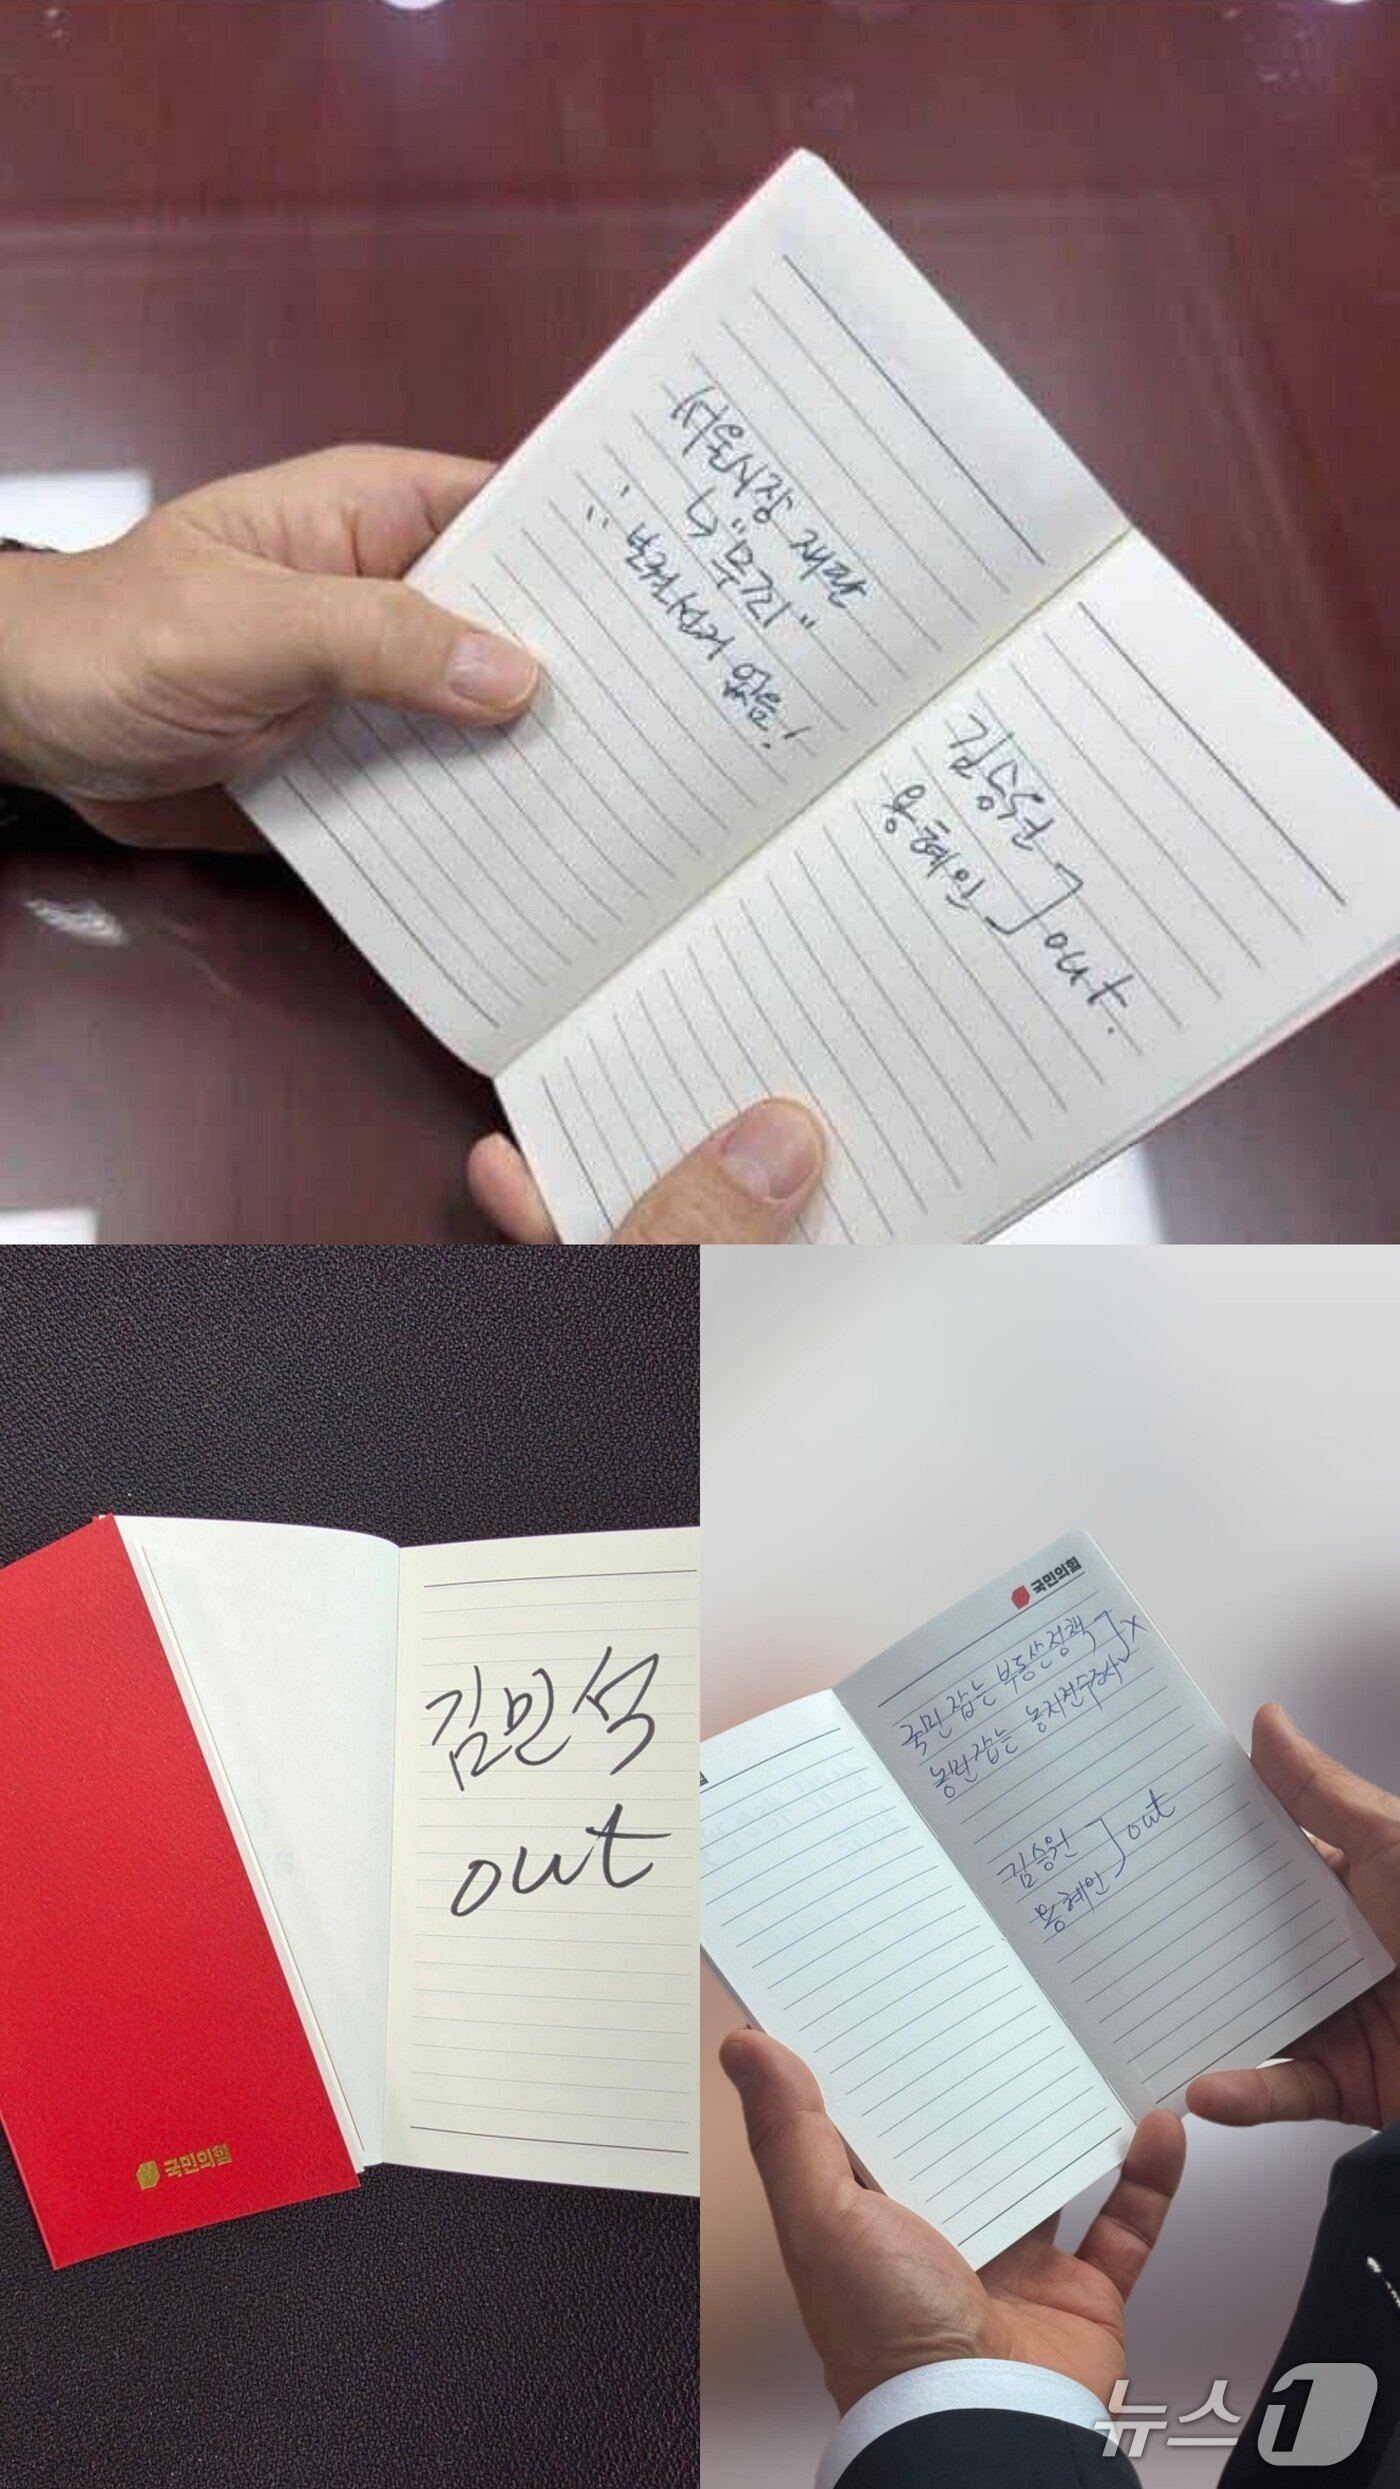 서울시장 재판
↳ "무죄"
∴ 보궐선거 없음!
김승원
용혜인
out.
김민석
out
국민의힘
국민의힘
국민 잡는 부동산정책
농민 잡는 농지전수조사
X
김승원
용혜인
out
뉴스1